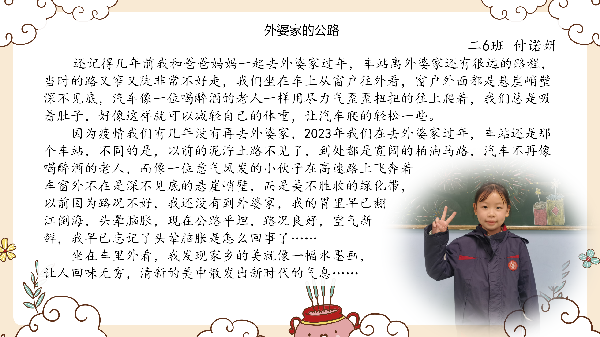 外婆家的公路
二6班 付诺妍
还记得几年前我和爸爸妈妈一起去外婆家过年，车站离外婆家还有很远的路程，
当时的路又窄又陡非常不好走，我们坐在车上从窗户往外看，窗户外面都是悬崖峭壁
深不见底，汽车像一位喝醉酒的老人一样用尽力气歪歪扭扭的往上爬着，我们总是吸
着肚子，好像这样就可以减轻自己的体重，让汽车爬的轻松一些。
因为疫情我们有几年没有再去外婆家，2023年我们在去外婆家过年，车站还是那
个车站，不同的是，以前的泥泞土路不见了，到处都是宽阔的柏油马路，汽车不再像
喝醉酒的老人，而像一位意气风发的小伙子在高速路上飞奔着
车窗外不在是深不见底的悬崖峭壁，而是美不胜收的绿化带，
以前因为路况不好，我还没有到外婆家，我的胃里早已翻
江倒海，头晕脑胀，现在公路平坦，路况良好，空气新
鲜，我早已忘记了头晕脑胀是怎么回事了……
坐在车里外看，我发现家乡的美就像一幅水墨画，
让人回味无穷，清新的美中散发出新时代的气息……